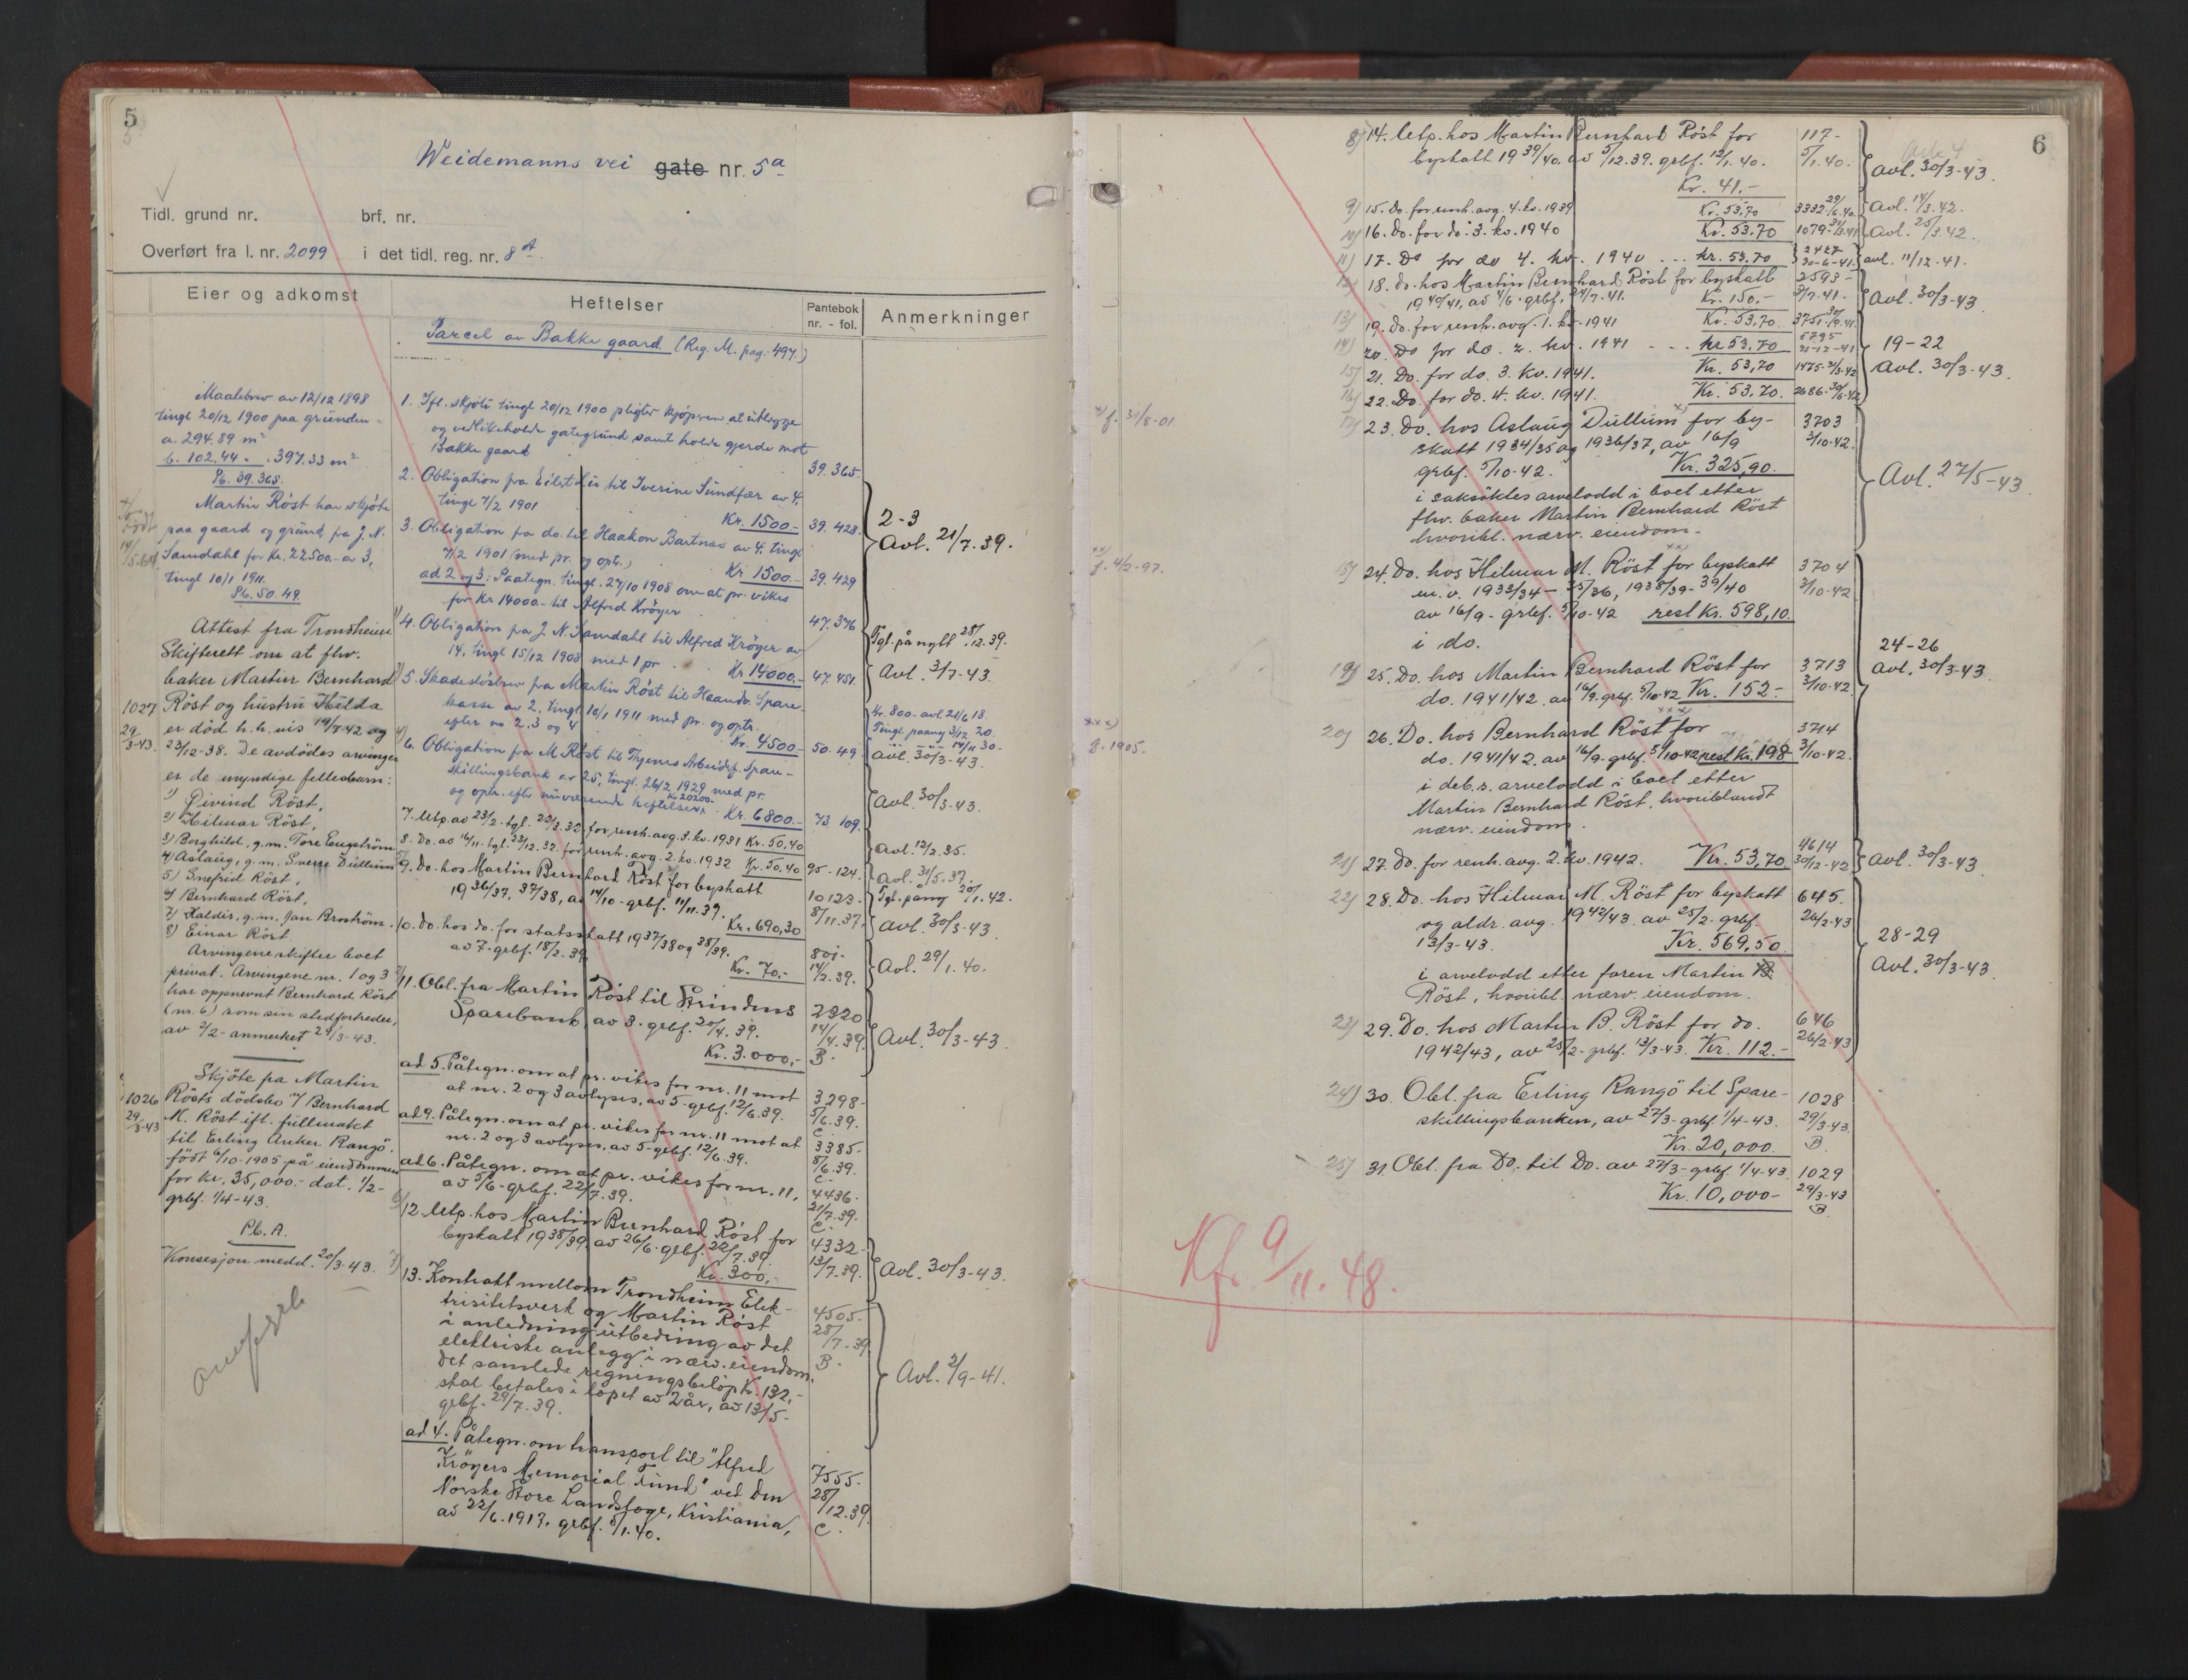 5
Weidemanns vei gate nr. 5a
Tidl. grund nr. brf. nr.
Overført fra l. nr. 2099 i det tidl. reg. nr. 8A
Eier og adkomst
Maalebrev av 12/12 1898
tingl 20/12 1900 paa grunden
a. 294.89 m²
b. 102.44 - . 397.33 m²
Pb. 39.365.
Martin Röst har skjöte
paa gaard og grund fra J. N.
Samdahl for Kr. 22500.- av 3,
tingl 10/1 1911.
Pb. 50.49.
Attest fra Trondheim
Skifterett om at fhv.
baker Martin Bernhard
1027 Röst og hustru Hilda
29/3-43. er död h.h.vis 19/7-42 og
23/12-38. De avdödes arvinger
er de umyndige fellesbarn:
1) Öivind Röst,
2) Hilmar Röst,
3) Borghild, g.m. Tore Engström
4) Aslaug, g.m. Sverre Dullum
5) Snefrid Röst,
6) Bernhard Röst,
7) Haldis, g.m. Jan Broström.
8) Einar Röst
Arvingene skifter boet
privat. Arvingene nr. 1 og 3
har oppnevnt Bernhard Röst
(nr. 6) som sin stedfortreder,
av 2/2- anmerket 29/3-43.
Skjöte fra Martin
1026 Rösts dödsbo v/ Bernhard
29/3-43 M. Röst ifl. fullmakt
til Erling Anker Rangö.
födt 6/10-1905 på eiendommen
for kr. 35,000.- dat. 1/2-
grbf. 1/4-43.
Pb. A.
Konsesjon medd. 20/3-43.
Heftelser
Pantebok
nr. - fol.
Anmerkninger
Parcel av Bakke gaard (Reg. M. pag. 497.)
1. Ifl. skjöte tingl 20/12 1900 pligter kjöperen at utlegge
og vedlikeholde gategrund samt holde gjerde mot
Bakke gaard 39.365.
2. Obligation fra Eilert Lie til Iverine Sundfær av 4,
tingl 7/2 1901 Kr. 1500.- 39.428.
3. Obligation fra do. til Haakon Bartnas av 4, tingl
7/2 1901 (med pr. og optr.) Kr 1500.- 39.429
2-3
Avl. 21/7.39.
ad 2 og 3: Paategn. tingl. 27/10 1908 om at pr. vikes
for Kr 14000.- til Alfred Kröyer
4. Obligation fra J. N. Samdahl til Alfred Kröyer av
14, tingl 15/12 1908 med 1 pr. Kr 14000.- 47.376
Tgl. på nytt 28/12.39.
Avl. 3/7-43.
5. Skadeslösbrev fra Martin Röst til Haandv. Spare-
kasse av 2, tingl 10/1 1911 med pr. og optr.
efter nr 2. 3 og 4 Kr. 4500.- 47.451
Kr. 800.- avl 21/6 18.
Tingl. paany 3/12 20.
avl. 30/3-43.
6. Obligation fra M. Röst til Ihjemes Arbeidsf. Spare-
skillingsbank av 25, tingl. 26/2 1929 med pr.
og optr. efter nuværende heftelser Kr. 20200.- Kr. 6800.- 50.49
Avl. 30/3-43.
7. Utp. av 23/2- tgl. 22/3.32 for renh. avg. 3. kv. 1931 Kr. 50,40 73.109.
Avl. 12/2.35.
8. Do. av 16/11- tgl. 23/12.32. for renh. avg. 2. kv. 1932 Kr. 50,40 95-124.
Avl. 31/5.37.
9. Do. hos Martin Bernhard Röst for byskatt
1936/37, 37/38, av 14/10- grbf. 11/11.39. Kr. 690,30
10123- 8/11.37.
Tgl. paany 20/1.42.
Avl. 30/3-43.
10. Do. hos do. for statsskatt 1937/38 og 38/39.
av 7- grbf. 18/2.39. Kr. 70.-
801- 14/2.39.
Avl. 29/1.40.
11. Obl. fra Martin Röst til Strindens
Sparebank, av 3- grbf. 20/4.39. Kr. 3.000,-
2320 14/4.39. B.
Avl. 30/3-43.
ad 5. Påtegn. om at pr. vikes for nr. 11 mot
at nr. 2 og 3 avlyses, av 5- grbf. 12/6.39.
3298- 5/6.39. C.
ad 9. Påtegn. om at pr. vikes for nr. 11 mot at
nr. 2 og 3 avlyses, av 5- grbf. 12/6.39.
3385- 8/6.39. C.
ad 6. Påtegn. om at pr. vikes for nr. 11,
av 5/6- grbf. 22/7.39.
4436- 21/7.39. C.
12. Utp. hos Martin Bernhard Röst for
byskatt 1938/39, av 26/6- grbf. 22/7.39. Kr. 300,-
4332- 13/7.39.
Avl. 30/3-43.
13. Kontrakt mellom Trondheim Elek-
trisitetsverk og Martin Röst
i anledning utbedring av det
elektriske anlegg i nærv. eiendom.
Det samlede regningsbelöp Kr. 132,-
skal betales i löpet av 2 år, av 13/5-
grbf. 29/7.39.
4505- 28/7-39. B.
Avl. 2/9-41.
ad 4. Påtegn. om transport til "Alfred
Kröyers Memorial Fund" ved Den
Norske Store Landsloge, Kristiania,
av 22/6.1917. grbf. 5/1.40.
7555. 28/12.39. C.
6
8) 14. Utp. hos Martin Bernhard Röst for
byskatt 1939/40. av 5/12.39. grbf. 12/1.40.
Kr. 41.-
117- 5/1.40.
Avl. 30/3-43.
9) 15. Do. for renh. avg. 4. kv. 1939 Kr. 53,70 3332 29/6.40. Avl. 14/3.42.
10) 16. Do. for do. 3. kv. 1940 Kr. 53,70 1079- Avl. 25/3.42.
11) 17. Do for do 4. kv. 1940 ... kr. 53,70 2427 30-6-41. avl. 11/12-41.
12) 18. do. hos Martin Bernhard Röst for byskatt
1940/41, av 4/6- grbf. 24/7-41. Kr. 150,- 2593- 3/7-41.
Avl. 30/3-43
13) 19. Do. for renh. avg. 1. kv. 1941 Kr. 53,70 3751-
14) 20. Do for do. 2. kv. 1941 ... kr 53,70 5795
15) 21. Do. for do. 3. kv. 1941. Kr. 53,70 1475-
16) 22. Do. for do. 4. kv. 1941. Kr. 53,70. 2686-
19-22
Avl. 30/3-43.
x) f. 31/8-01.
17) 23. Do. hos Aslaug Dullum x) for by-
skatt 1934/35 og 1936/37, av 16/9
grbf. 5/10-42. Kr. 325,90.
i saksöktes arvelodd i boet etter
fhv. baker Martin Bernhard Röst
hvoribl. nærv. eiendom.
3703 3/10-42.
Avl. 27/5-43.
xx) f. 4/2-97.
18) 24. Do. hos Hilmar M. Röst xx) for byskatt
m.v. 1933/34 - 35/36, 1938/39- 39/40
av 16/9- grbf. 5/10-42 rest Kr. 598,10.
i do.
3704 3/10-42
24-26
Avl. 30/3-43.
19) 25. Do. hos Martin Bernhard Röst for
do. 1941/42 av 16/9- grbf. 5/10-42 Kr. 152.-
3713 3/10-42.
xxx) f. 1905.
20) 26. Do. hos Bernhard Röst xxx) for
do. 1941/42. av 16/9- grbf. 5/10-42 rest kr. 198
i deb.s. arvelodd i boet etter
Martin Bernhard Röst, hvoriblandt
nærv. eiendom.
3714 3/10-42.
21) 27. Do. for renh. avg. 2. kv. 1942. Kr. 53,70 4614 30/12-42 Avl. 30/3-43.
22) 28. Do. hos Hilmar M. Röst for byskatt
og aldr. avg. 1942/43 av 25/2- grbf.
13/3-43. Kr. 569,50
i arvelodd etter faren Martin
Röst, hvoribl. nærv. eiendom.
645. 26/2-43
28-29
Avl. 30/3-43.
23) 29. Do. hos Martin B. Röst for do.
1942/43, av 25/2- grbf. 13/3-43. Kr. 112.-
646 26/2-43
24) 30. Obl. fra Erling Rangö til Spare-
skillingsbanken, av 27/3- grbf. 1/4-43.
Kr. 20,000.
1028 29/3-43. B
25) 31. Obl. fra Do. til Do. av 27/3- grbf. 1/4-43
Kr. 10,000-
1029 29/3-43 B.
Kfr. 9/11.48.